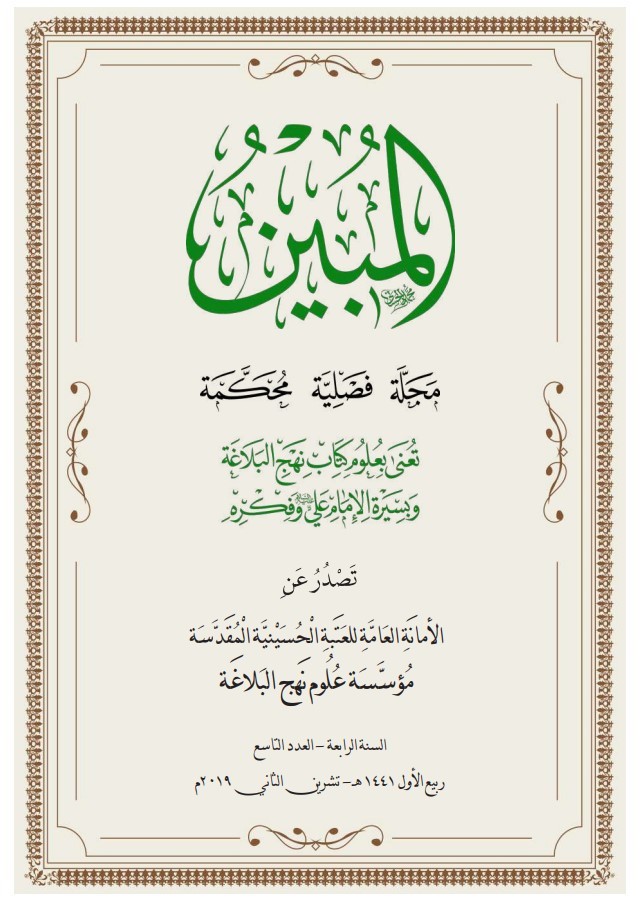 المُبِين
مَجَلَّة فَصْلِيَّة مُحَكَّمَة
تُعْنَى بِعُلُومِ كِتَابِ نَهْجِ البَلَاغَة
وَبِسِيْرَةِ الإِمَامِ عَلِيٍّ وَفِكْرِهِ
تَصْدُرُ عَنِ
الأَمَانَةِ العَامَّةِ لِلعَتَبَةِ الْحُسَيْنِيَّة الْمُقَدَّسَة
مُؤسَّسَة عُلُوم نَهج البَلاغَة
السنة الرابعة – العدد التاسع
ربيع الأول ١٤٤١هـ – تشرين الثاني ٢٠١٩م